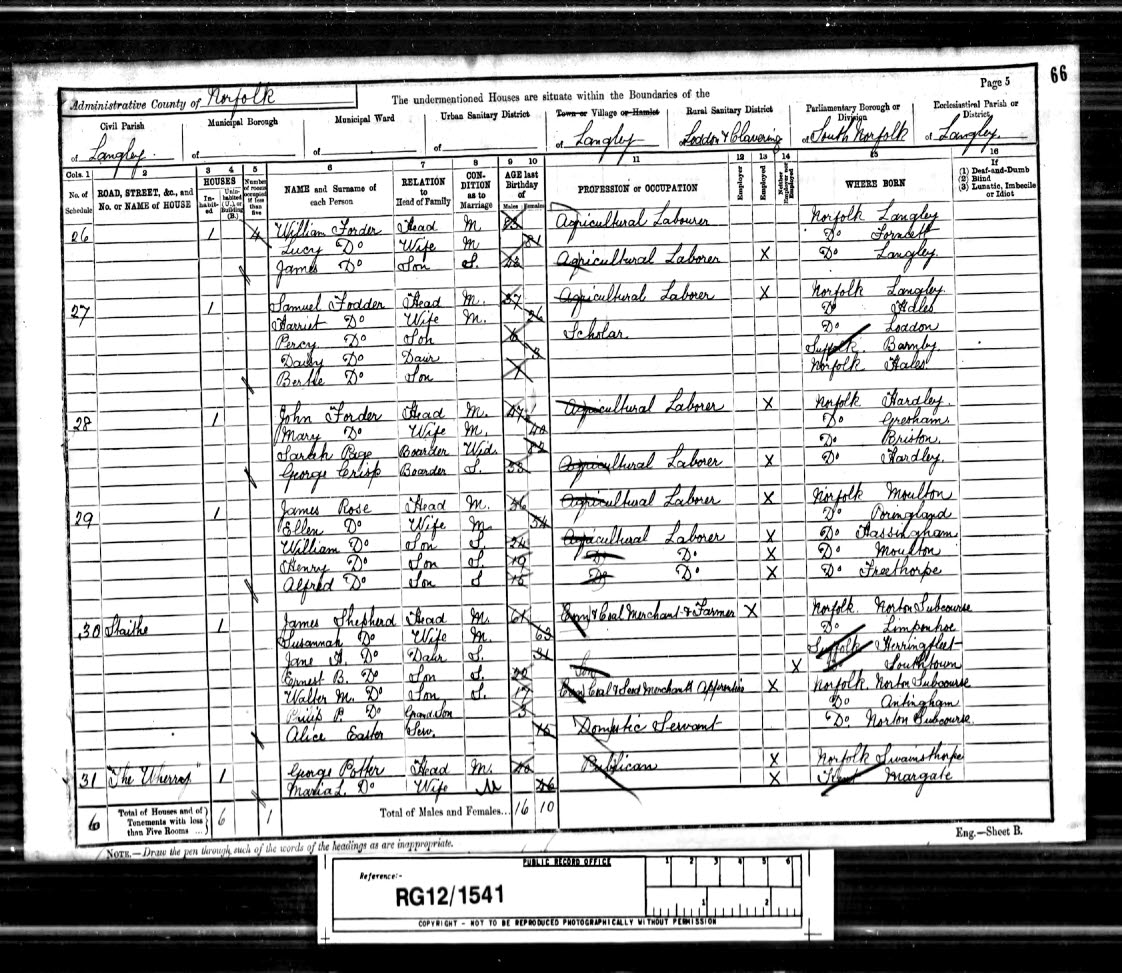 66
Page 5
Administrative County of Norfolk
The undermentioned Houses are situate within the Boundaries of the
Civil Parish
of Langley
Municipal Borough
of
Municipal Ward
of
Urban Sanitary District
of
Town or Village or Hamlet
of Langley
Rural Sanitary District
Loddon & Clavering
Parliamentary Borough or Division
of South Norfolk
Ecclesiastical Parish or District
of Langley
Cols. 1 2 3 4 5 6 7 8 9 10 11 12 13 14 15 16
No. of Schedule
ROAD, STREET, &c., and No. or NAME of HOUSE
HOUSES
Inhabited
Uninhabited (U.), or Building (B.)
Number of rooms occupied if less than five
NAME and Surname of each Person
RELATION to Head of Family
CONDITION as to Marriage
AGE last Birthday of
Males Females
PROFESSION or OCCUPATION
Employer
Employed
Neither Employer nor Employed
WHERE BORN
If
(1) Deaf-and-Dumb
(2) Blind
(3) Lunatic, Imbecile or Idiot
26 1 4 William Forder Head M Agricultural Labourer Norfolk Langley
Lucy Do Wife M 81 Do Forncett
James Do Son S. Agricultural Laborer X Do Langley
27 1 Samuel Fodder Head M. 37 Agricultural Laborer X Norfolk Langley
Harriet Do Wife M. 26 Do Hales
Percy Do Son 6 Scholar. Do Loddon
Daisy Do Daur 3 Suffolk Barnby
Bertie Do Son Norfolk Hales
28 1 John Forder Head M. 47 Agricultural Laborer X Norfolk Hardley
Mary Do Wife M. 40 Do Gresham
Sarah Page Boarder Wid. Do Briston
George Crisp Boarder S. 38 Agricultural Laborer X Do Hardley
29 1 James Rose Head M. Agricultural Laborer X Norfolk Moulton
Ellen Do Wife M 54 Do Poringland
William Do Son S 24 Agricultural Laborer X Do Hassingham
Henry Do Son S. 19 Do Do X Do Moulton
Alfred Do Son S Do Do X Do Freethorpe
30 Staithe 1 James Shepherd Head M. 61 Corn & Coal Merchant & Farmer X Norfolk Norton Subcourse
Susannah Do Wife M. 63 Do Limpenhoe
Jane A. Do Daur S. 31 Suffolk Herringfleet
Ernest B. Do Son S. Son X Do Southtown
Walter M. Do Son S. 17 Corn Coal & Seed Merchant's Apprentice X Norfolk Norton Subcourse
Philip P. Do Grandson 3 Do Antingham
Alice Easter Serv. Domestic Servant Do Norton Subcourse
31 "The Wherry" 1 George Potter Head M. Publican X Norfolk Swainsthorpe
Maria L. Do Wife M 46 X Kent Margate
6 Total of Houses and of Tenements with less than Five Rooms ... 6 1 Total of Males and Females... 16 10
NOTE.—Draw the pen through such of the words of the headings as are inappropriate.
Eng.—Sheet B.
PUBLIC RECORD OFFICE
Reference:-
RG12/1541
1 2 3 4 5 6
1 2
COPYRIGHT - NOT TO BE REPRODUCED PHOTOGRAPHICALLY WITHOUT PERMISSION